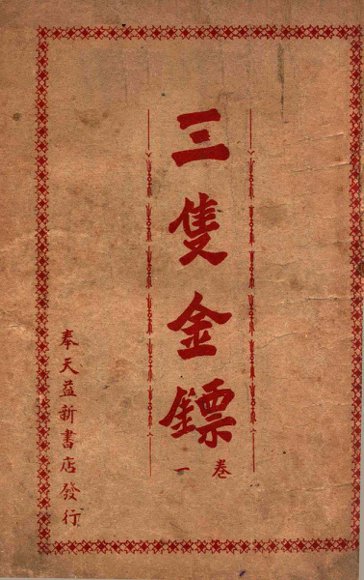 三隻金鏢
卷一
奉天益新書店發行